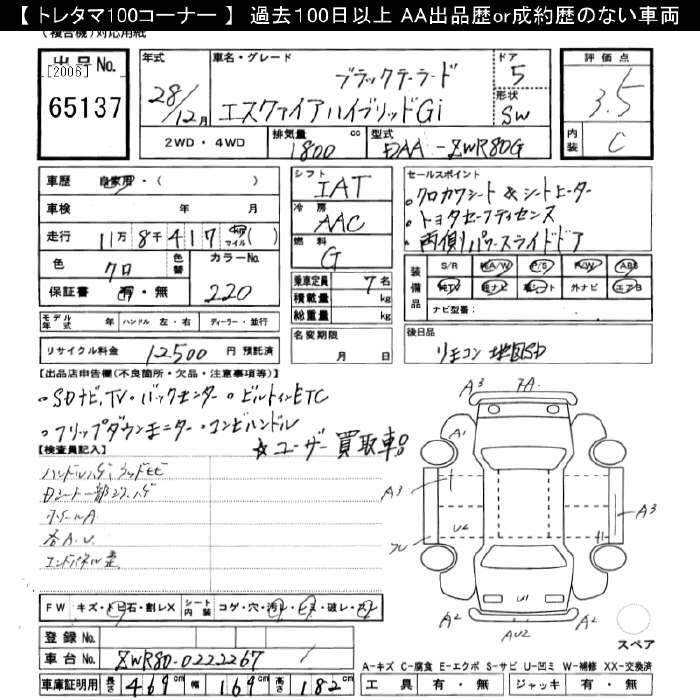 【 トレタマ100コーナー 】 過去100日以上 AA出品歴or成約歴のない車両
(複合機)対応用紙
出品No.
[2006]
65137
年式
28/12月
車名・グレード
ブラックテーラード
エスクァイアハイブリッドGi
ドア
5
形状
SW
評価点
3.5
内装
C
2WD・4WD
排気量
1800 cc
型式
DAA-ZWR80G
車歴 自家用・( )
車検 年 月
走行 11万8千417 km マイル( )
色 クロ
色替
カラーNo.
220
保証書 有・無
シフト
IAT
冷房
AAC
燃料
G
乗車定員 7名
積載量 kg
総重量 kg
セールスポイント
・クロカワシート & シートヒーター
・トヨタセーフティセンス
・両側パワースライドドア
装備品
S/R 純A/W P/S P/W ABS
純TV 純ナビ 革シート 外ナビ エアB
ナビ型番:
モデル年式 年 ハンドル 左・右 ディーラー・並行
リサイクル料金 12500 円 預託済
名変期限
月 日
後日品
リモコン 地図SD
【出品店申告欄(不良箇所・欠品・注意事項等)】
・SDナビ,TV・バックモニター・ビルトインETC
・フリップダウンモニター・コンビハンドル
☆ユーザー買取車。
【検査員記入】
ホイールA
各A.U.
A3
7A
A1
A3
U2
A3
A2
U1
AU2
A2
スペア
FW キズ・トビ石・割レX シート内装 コゲ・穴・汚レ・シミ・破レ・スレ
登録No.
車台No. ZWR80-0222267 /
車庫証明用 長さ 469cm 幅 169cm 高さ 182cm
A-キズ C-腐食 E-エクボ S-サビ U-凹ミ W-補修 XX-交換済
工具 有・無 ジャッキ 有・無